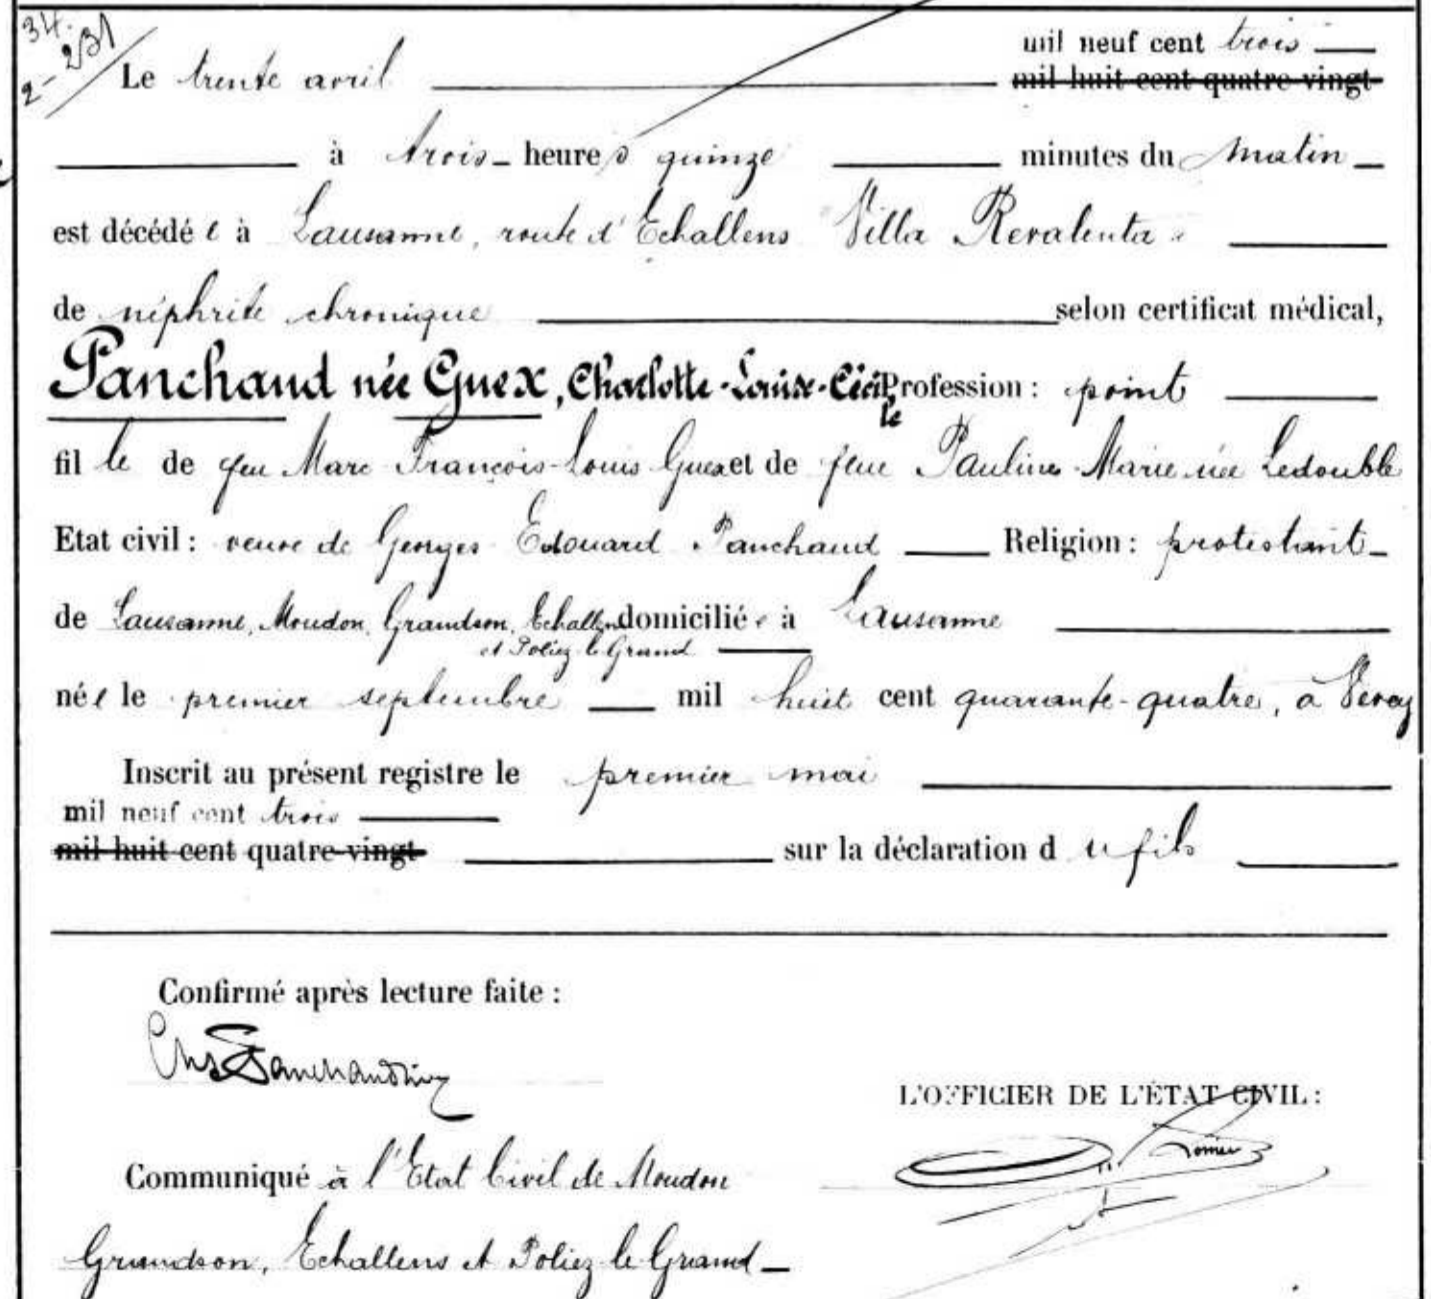 34.
2-231
mil neuf cent trois
Le trente avril mil huit cent quatre-vingt
à trois heures quinze minutes du matin
est décédée à Lausanne, route d'Echallens "Villa Revalenta"
de néphrite chronique selon certificat médical,
Panchaud née Guex, Charlotte-Louise-Cécile Profession : point
fille de feu Marc François-Louis Guex et de feue Pauline Marie née Ledouble
Etat civil : veuve de Georges Edouard Panchaud Religion : protestant
de Lausanne, Moudon, Grandson, Echallens domiciliée à Lausanne
et Poliez le Grand
née le premier septembre mil huit cent quarante-quatre, à Vevey
Inscrit au présent registre le premier mai
mil neuf cent trois
mil huit cent quatre-vingt sur la déclaration du fils
Confirmé après lecture faite :
L'OFFICIER DE L'ÉTAT CIVIL :
Communiqué à l'Etat Civil de Moudon
Grandson, Echallens et Poliez le Grand